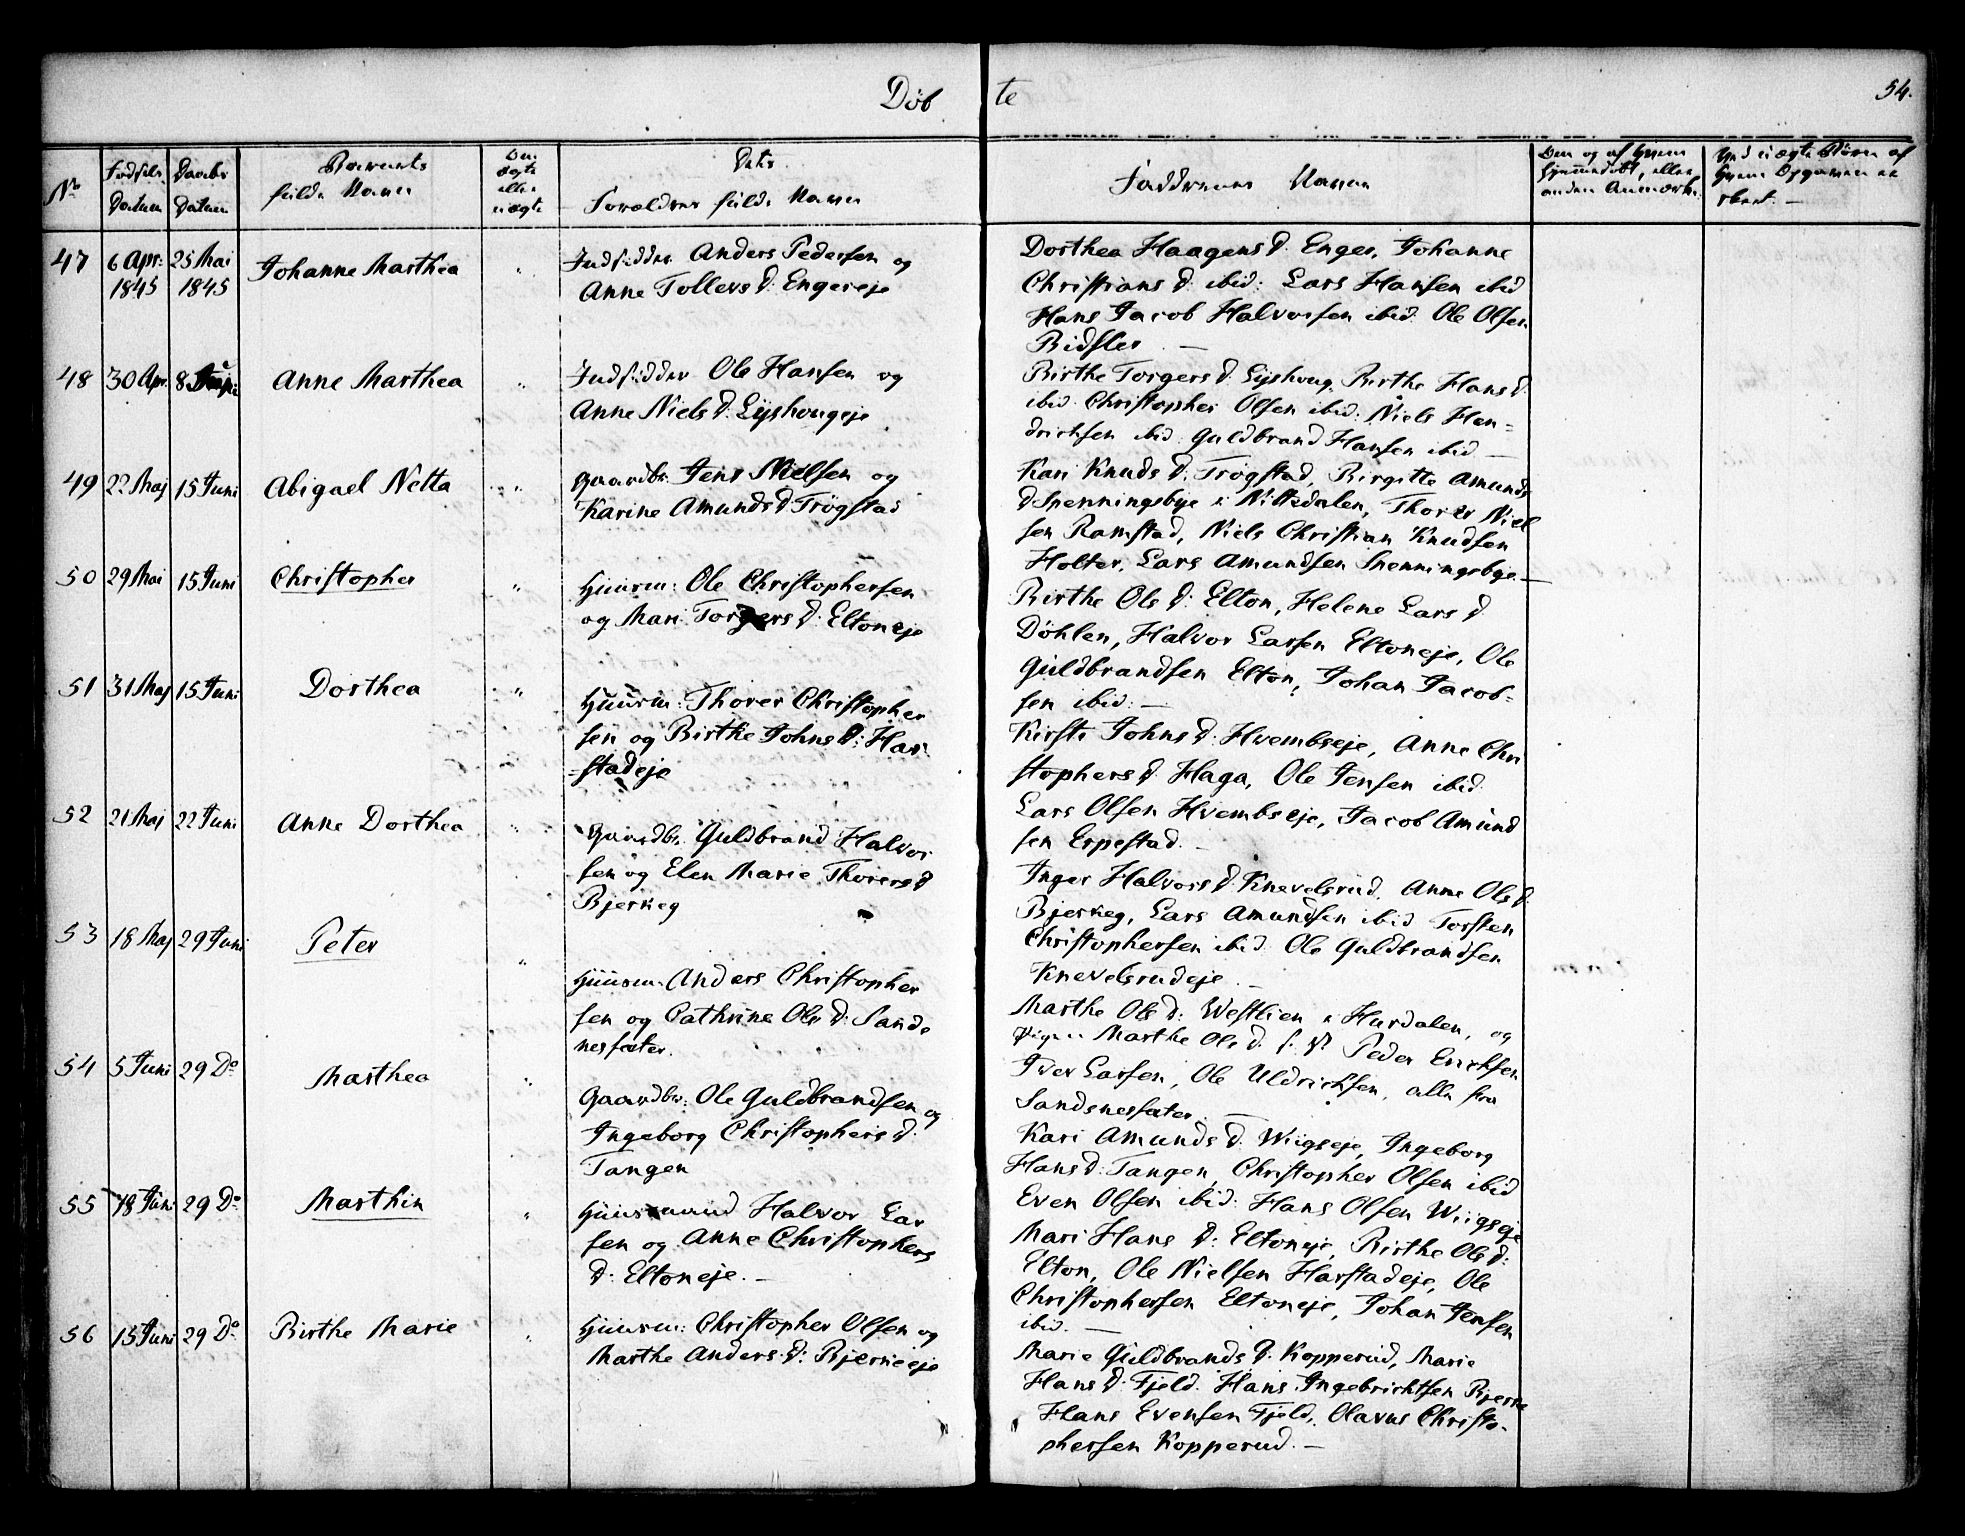 Döbte
54.
No
Födsels Datum
Daabs Datum
Barnets fulde Navn
Om ægte eller uægte
Dets Forældres fulde Navn
Faddernes Navne
Om og af hvem hjemmedöbt, eller anden Anmærk:
Ved uægte Börn af hvem Opgaven er skeet. —
47
6 Apr: 1845
25 Mai 1845
Johanne Marthea
"
Indsidder Anders Pedersen og
Anne Tollers D: Engereje
Dorthea Haagens D: Enger, Johanne
Christians D: ibid: Lars Hansen ibid
Hans Jacob Halvorsen ibid: Ole Olsen
Bidsler. —
48
30 Apr.
8 Juni
Anne Marthea
"
Indsidder Ole Hansen og
Anne Niels D: Lyshougeje
Birthe Torgers D: Lyshoug, Birthe Hans D:
ibid: Christopher Olsen ibid: Niels Hen=
drichsen ibid: Guldbrand Hansen ibid —
49
22 Maj
15 Juni
Abigael Netta
"
Gaardbr: Jens Nielsen og
Karine Amunds D: Trögstad
Kari Knuds D: Trögstad, Birgitte Amunds
D: Spenningsbye i Nittedalen, Thorer Niel
sen Ramstad, Niels Christian Knudsen
Holter, Lars Amundsen Spenningsbye —
50
29 Mai
15 Juni
Christopher
"
Huusm: Ole Christophersen
og Mari Torgers D: Eltoneje
Birthe Ols D: Elton, Helene Lars D
Döhlen, Halvor Larsen Eltoneje, Ole
Guldbrandsen Elton, Johan Jacob=
sen ibid: —
51
31 Maj
15 Juni
Dorthea
"
Huusm: Thorer Christopher
sen og Birthe Johns D: Har
stadeje
Kirsti Johns D: Hvembseje, Anne Chri
stophers D: Haga, Ole Jensen ibid:
Lars Olsen Hvembseje, Jacob Amund
sen Erpestad. —
52
21 Maj
22 Juni
Anne Dorthea
"
Gaardbr. Guldbrand Halvor
sen og Elen Marie Thorers D
Bjerkeg
Inger Halvors D: Knevelsrud, Anne Ols D:
Bjerkeg, Lars Amundsen ibid Torsten
Christophersen ibid: Ole Guldbrandsen
Knevelsrudeje. —
53
18 Maj
29 Juni
Peter
"
Huusm: Anders Christopher
sen og Cathrine Ols D: Sands
nessæter.
Marthe Ols D: Westlien i Hurdalen, og
Pigen Marthe Ols D. Peder Erichsen
Iver Larsen, Ole Uldrichsen, alle fra
Sandsnessæter. —
54
5 Juni
29 Do
Marthea
"
Gaardbr: Ole Guldbrandsen og
Ingeborg Christophers D:
Tangen
Kari Amunds D: Wiigseje, Ingeborg
Hans D: Tangen, Christopher Olsen ibid
Even Olsen ibid: Hans Olsen Wiigseje
55
18 Juni
29 Do
Marthin
"
Huusmand Halvor Lar
sen og Anne Christophers
D: Eltoneje. —
Mari Hans D: Eltoneje, Birthe Ols D:
Elton, Ole Nielsen Harstadeje, Ole
Christophersen Eltoneje, Johan Jensen
ibid. —
56
15 Juni
29 Do
Birthe Marie
"
Huusm: Christopher Olsen og
Marthe Anders D: Bjerkeeje
Marie Guldbrands D: Kopperud, Marie
Hans D: Fjeld. Hans Ingebrichtsen Bjerke
Hans Evensen Fjeld, Olavus Christo-
phersen Kopperud. —